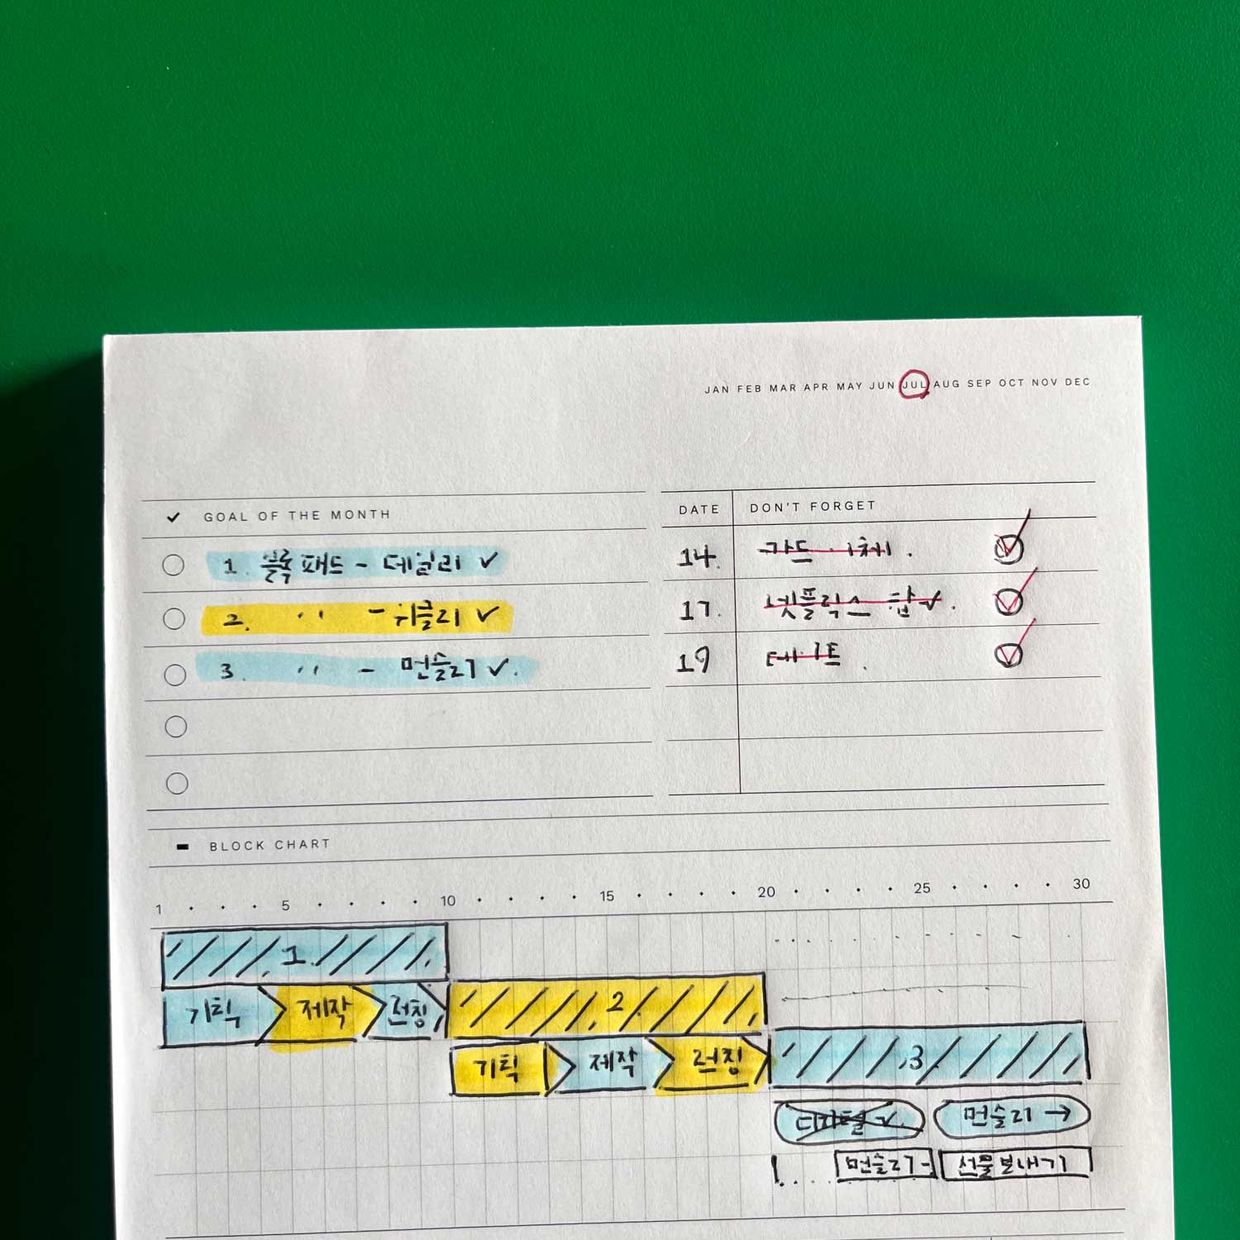 JAN FEB MAR APR MAY JUN JUL AUG SEP OCT NOV DEC
GOAL OF THE MONTH
1. 블록패드 - 데일리 ✓
2. '' - 위클리 ✓
3. '' - 먼슬리 ✓.
DATE DON'T FORGET
14.
17. 넷플릭스
19 데이트.
BLOCK CHART
1 5 10 15 20 25 30
1.
기획 제작 런칭
2.
기획 제작 런칭
3
디지털 ✓ 먼슬리 →
먼슬리 - 선물보내기